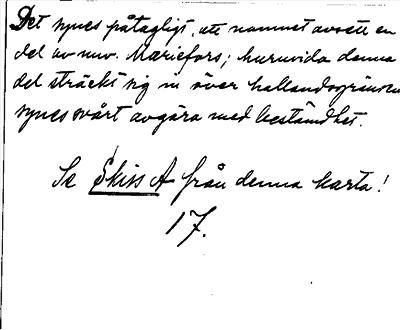 Det synes påtagligt, att namnet avsett en
del av nuv. Mariefors; huruvida denna
del sträckt sig in över hallandsgränsen
synes svårt avgöra med bestämdhet.
Se Skiss A från denna karta!
17.